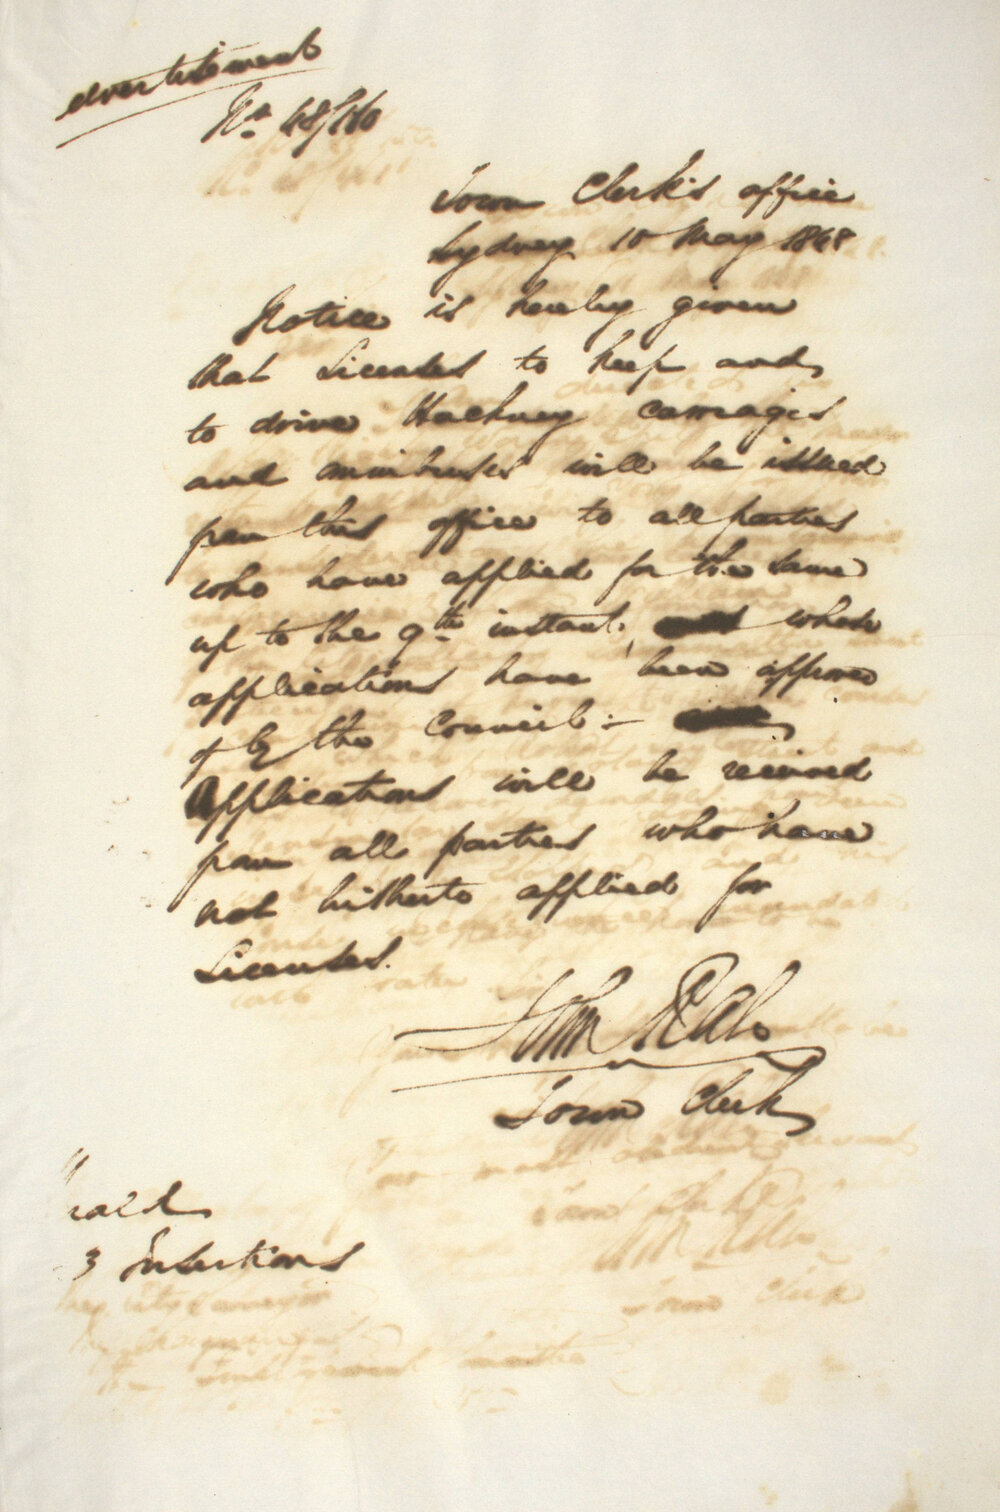 Advertisement
No. 48/160
Town Clerk's office
Sydney 10 May 1848
Notice is hereby given
that Licenses to keep and
to drive Hackney Carriages
and omnibuses will be issued
from this office to all parties
who have applied for the same
up to the 9th instant, whose
applications have been approved
of by the Council:-
Applications will be received
from all parties who have
not hitherto applied for
Licenses.
John Rae
Town Clerk
Herald
3 Insertions